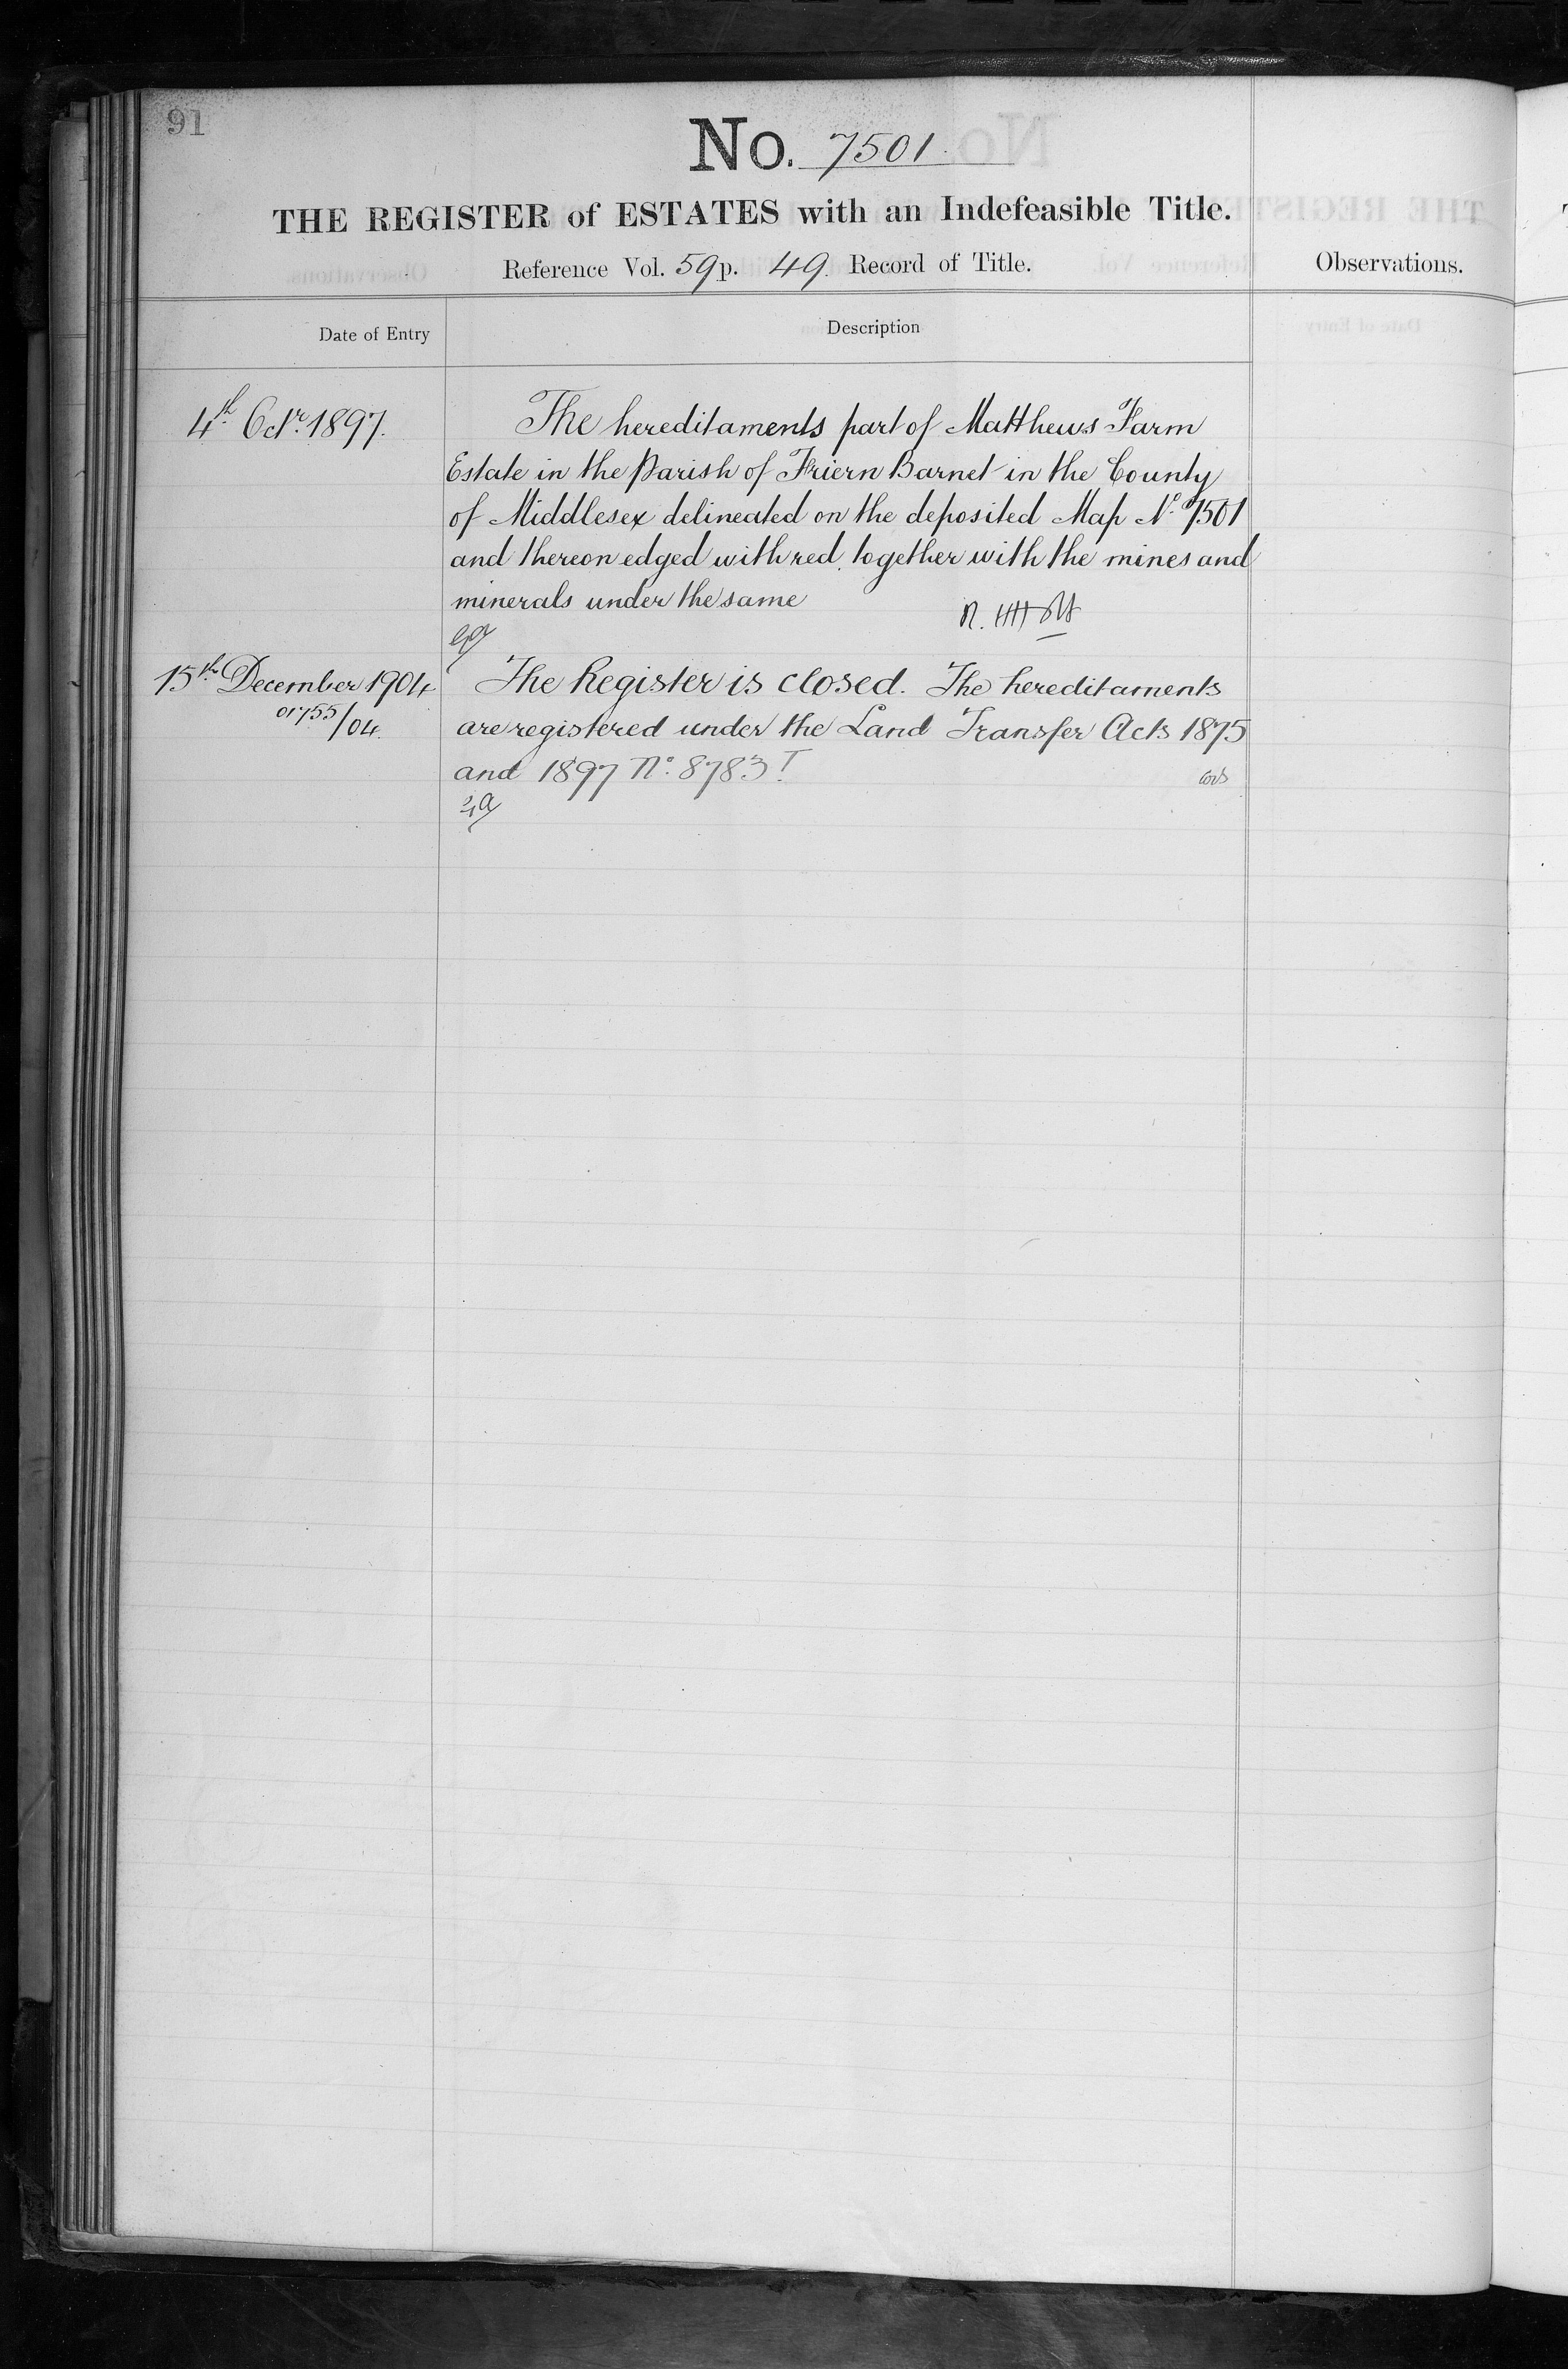 91
No. 7501.
THE REGISTER of ESTATES with an Indefeasible Title.
Reference Vol. 59 p. 49. Record of Title.
Observations.
Date of Entry
Description
4th Octr. 1897.
The hereditaments part of Matthews Farm
Estate in the Parish of Friern Barnet in the County
of Middlesex delineated on the deposited Map No. 7501
and thereon edged with red together with the mines and
minerals under the same
15th December 1904
01755/04.
The Register is closed. The hereditaments
are registered under the Land Transfer Acts 1875
and 1897 No. 8783